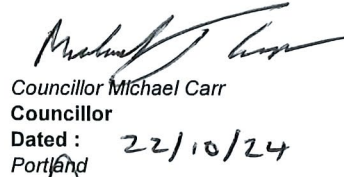 Councillor Michael Carr
Councillor
Dated : 22/10/24
Portland